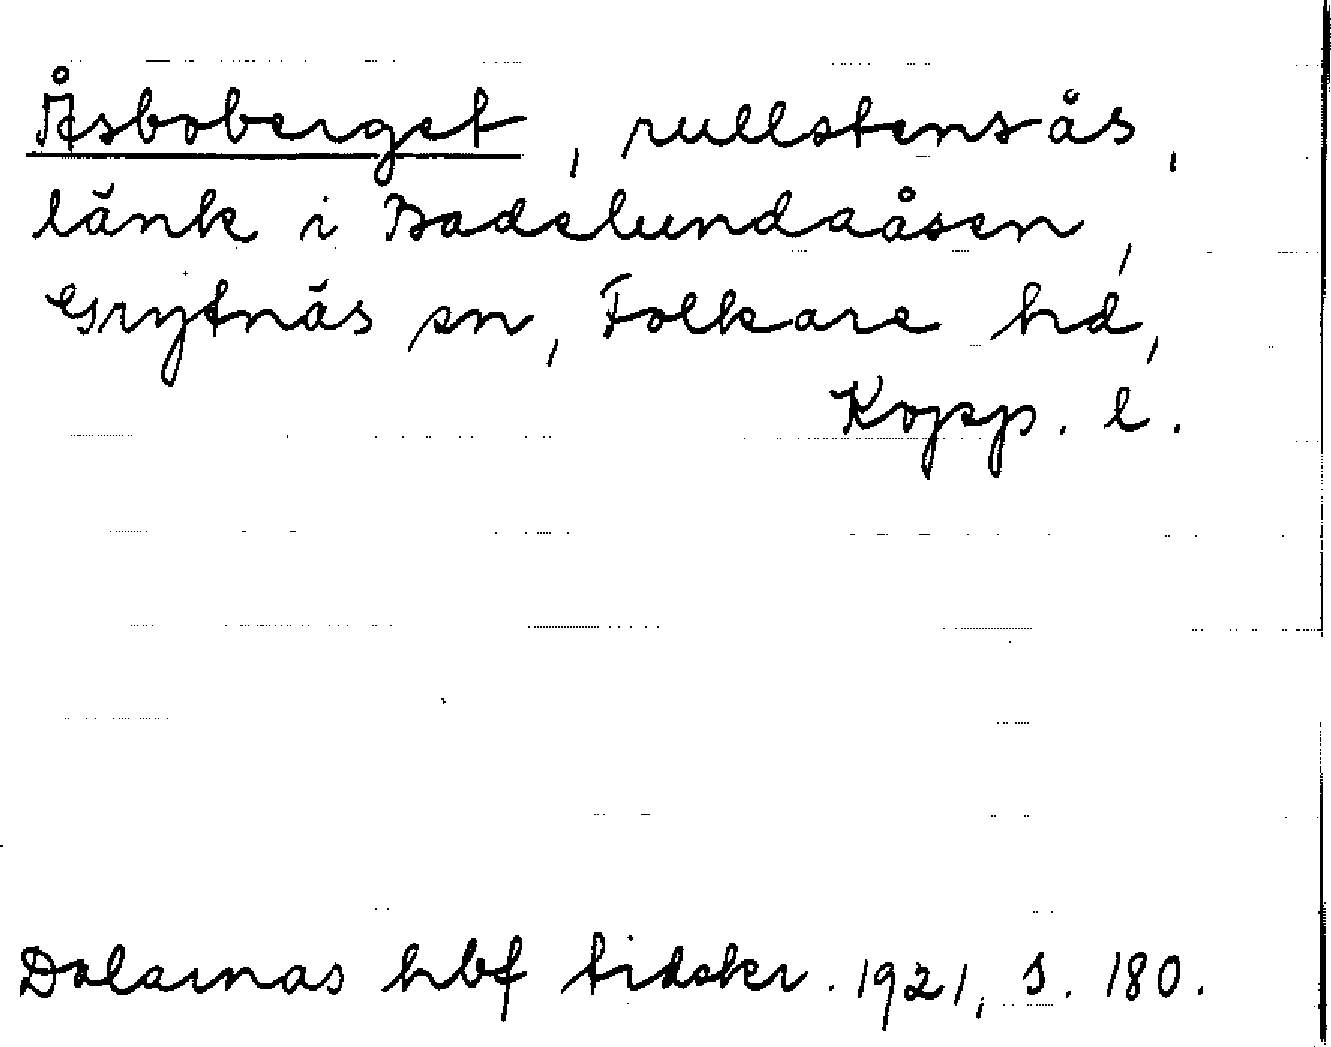 Åsboberget, rullstensås,
länk i Badelundaåsen,
Grytnäs sn, Folkare hd,
Kopp. l.
Dalarnas hbf tidskr. 1921, s. 180.